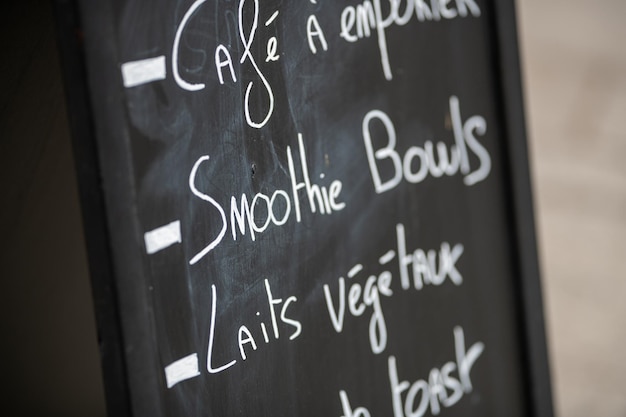 - Café à emporter
- Smoothie Bowls
- Laits végétaux
toast